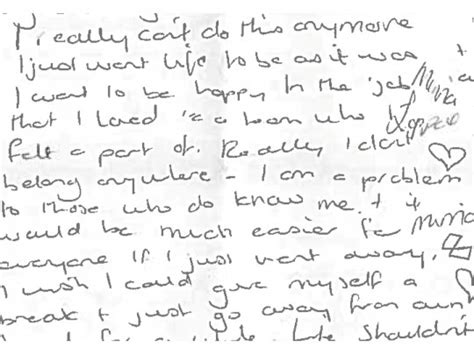 I really can't do this anymore
I just want life to be as it was +
I want to be happy in the 'job
that I loved in a team who I
felt a part of. Really I don't
belong anywhere - I am a problem
to those who do know me + it
would be much easier for
everyone if I just went away.
I wish I could give myself a
break + just go away from
life shouldn't